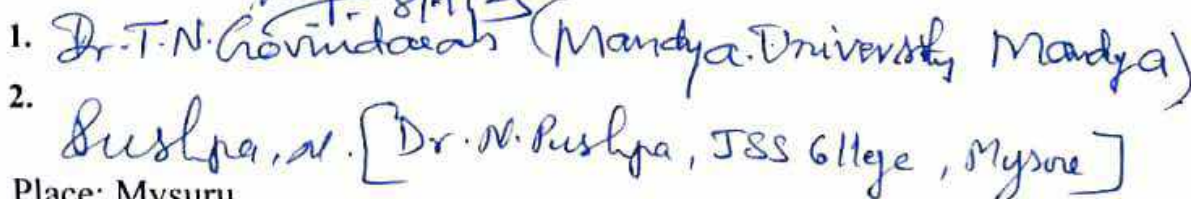 1. Dr. T. N. Govindaraju (Mandya. University, Mandya)
2.
Pushpa, N. [Dr. N. Pushpa, JSS College, Mysore]
Place: Mysuru